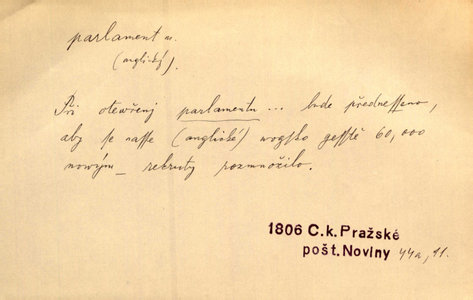 parlament m.
(anglický).
Při otewřenj parlamentu... bude předneſſeno,
aby se naſſe (anglické) wogsko geſſtě 60,000
nowým_ rekruty rozmnožilo.
1806 C.k. Pražské
pošt. Noviny 44a, 11.